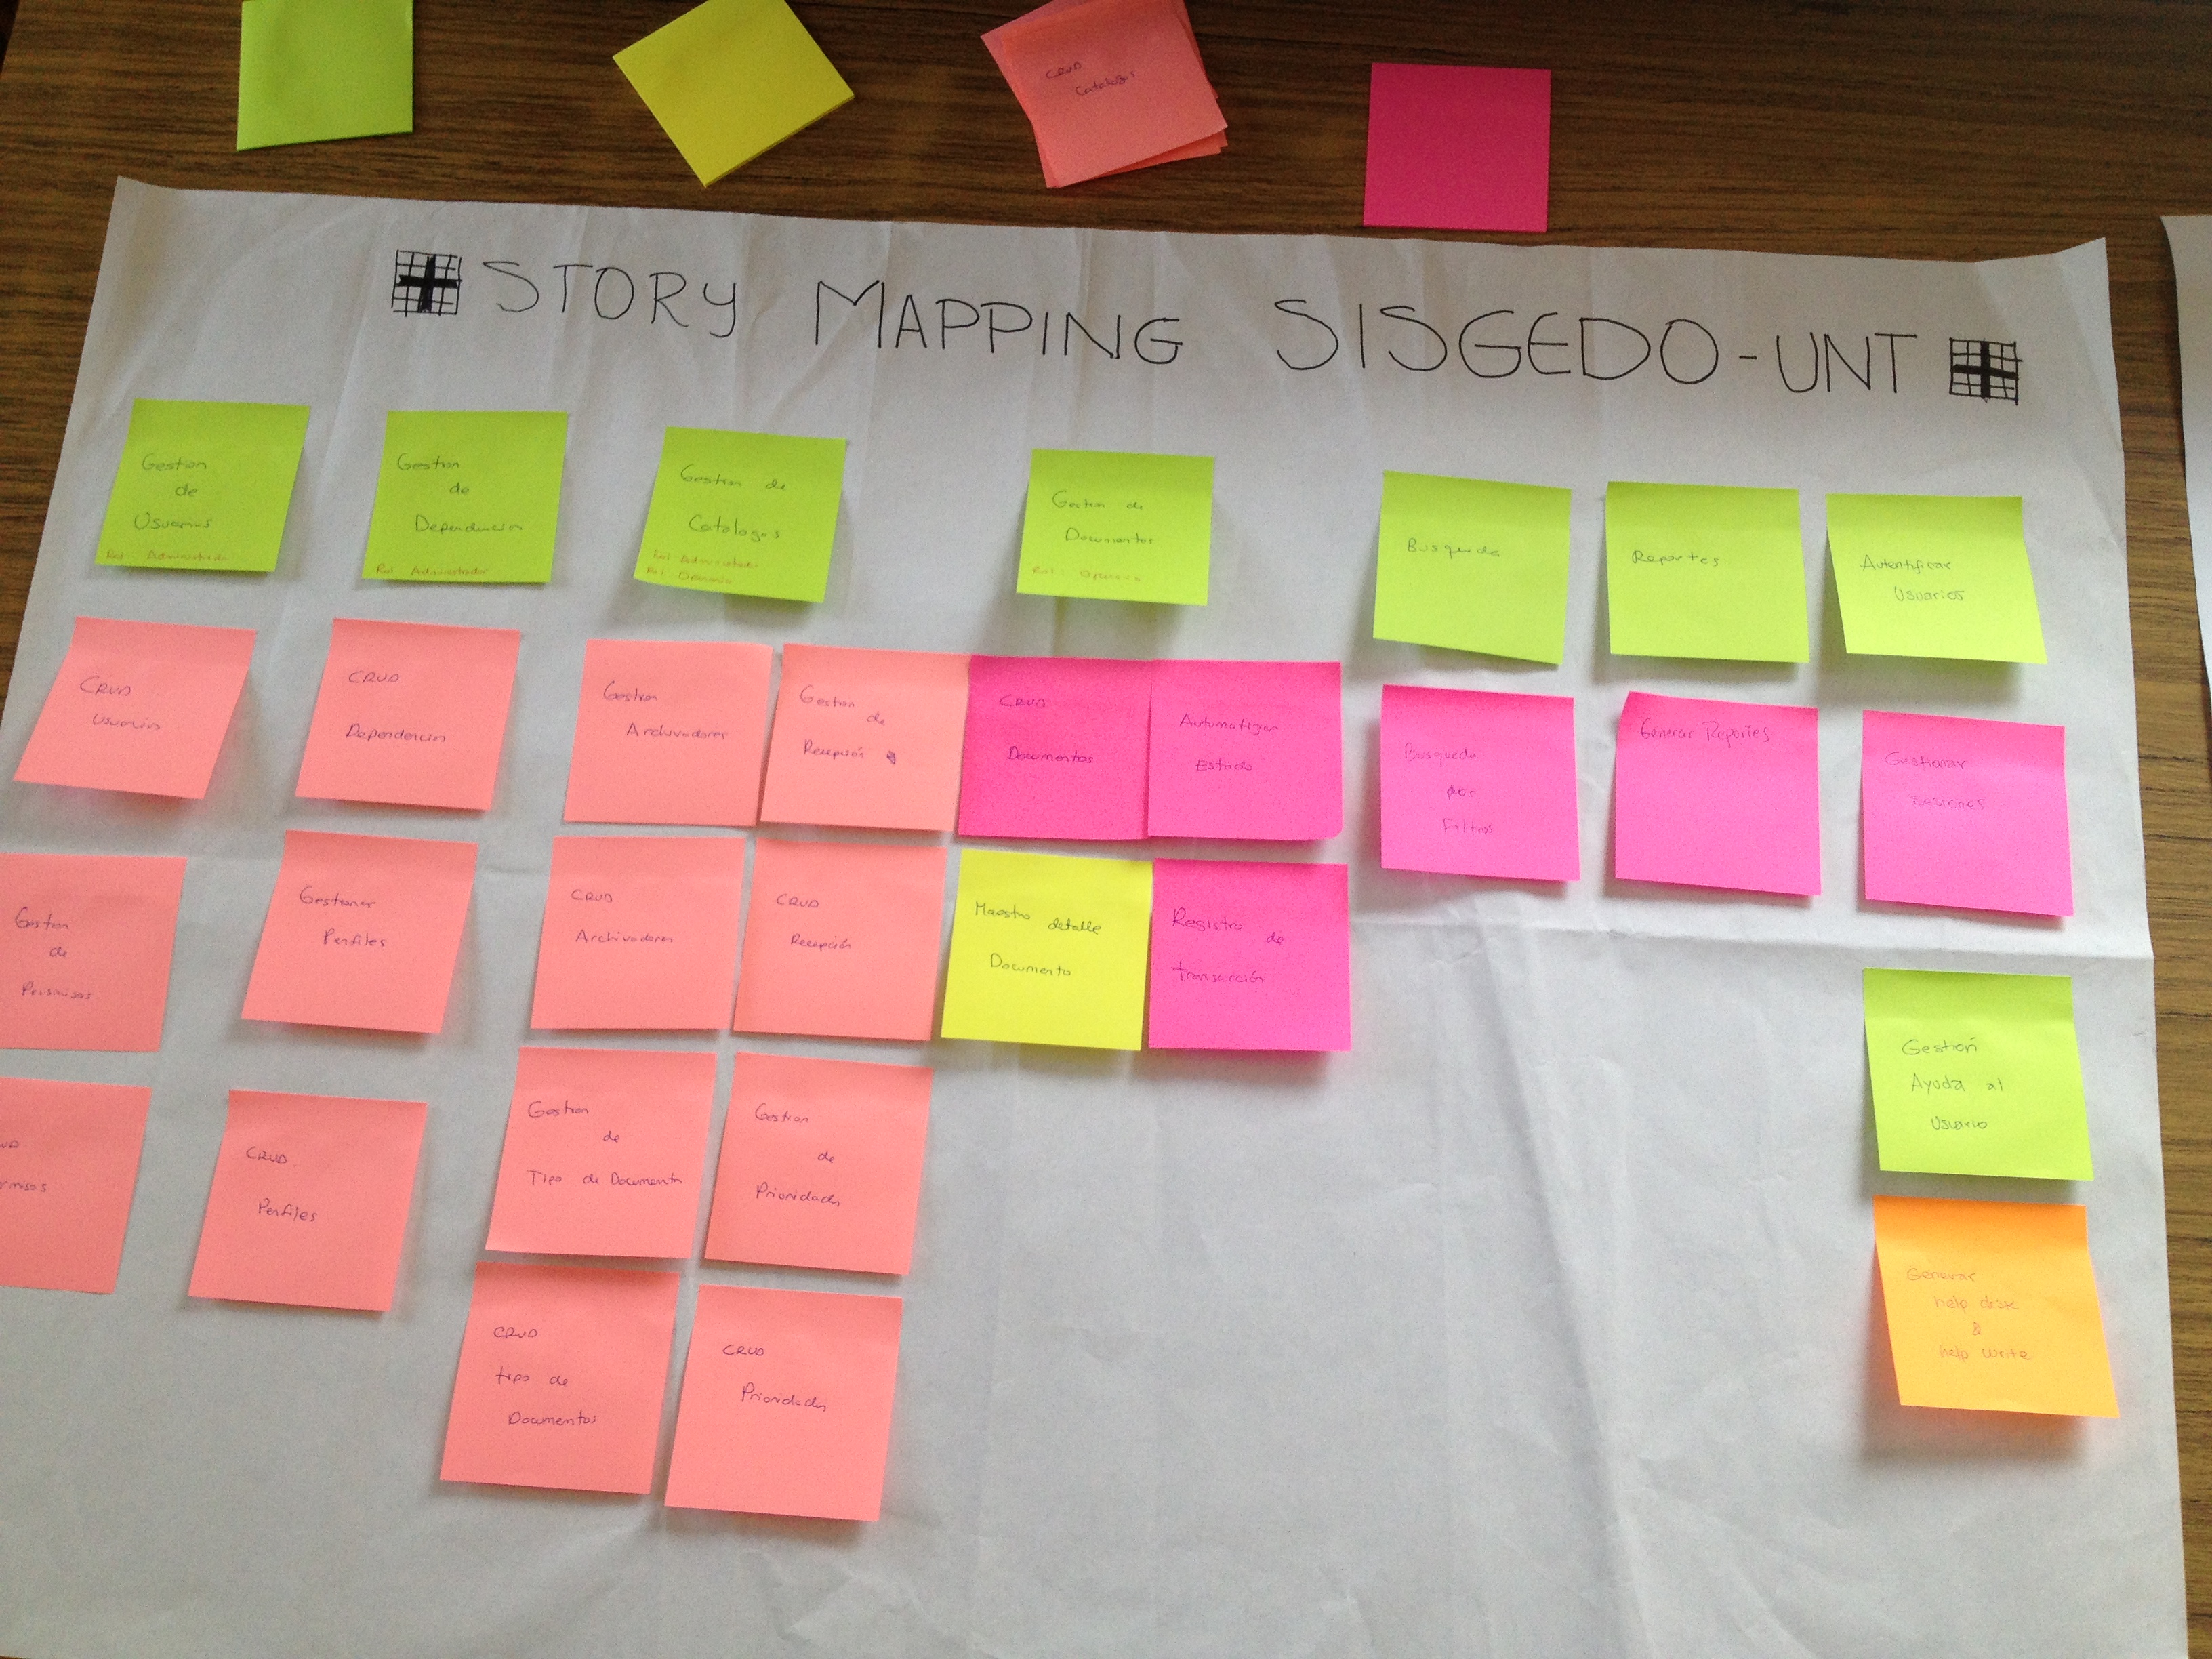 CRUD
Catalogos
STORY MAPPING SISGEDO-UNT
Gestion
de
Usuarios
Rol: Administrador
Gestion
de
Dependencia
Rol: Administrador
Gestion de
Catalogos
Rol: Administrador
Rol: Operario
Gestion de
Documentos
Rol: Operario
Busqueda
Reportes
Autentificar
Usuarios
CRUD
Usuarios
CRUD
Dependencia
Gestion
Archivadores
Gestion
de
Recepción
CRUD
Documentos
Automatizar
Estado
Busqueda
por
Filtros
Generar Reportes
Gestionar
sesiones
Gestion
de
Permisos
Gestionar
Perfiles
CRUD
Archivadores
CRUD
Recepción
Maestro detalle
Documento
Registro de
transacción
Gestión
Ayuda al
Usuario
UD
rmisos
CRUD
Perfiles
Gestion
de
Tipo de Documento
Gestion
de
Prioridades
Generar
help disk
&
help write
CRUD
tipo de
Documentos
CRUD
Prioridades